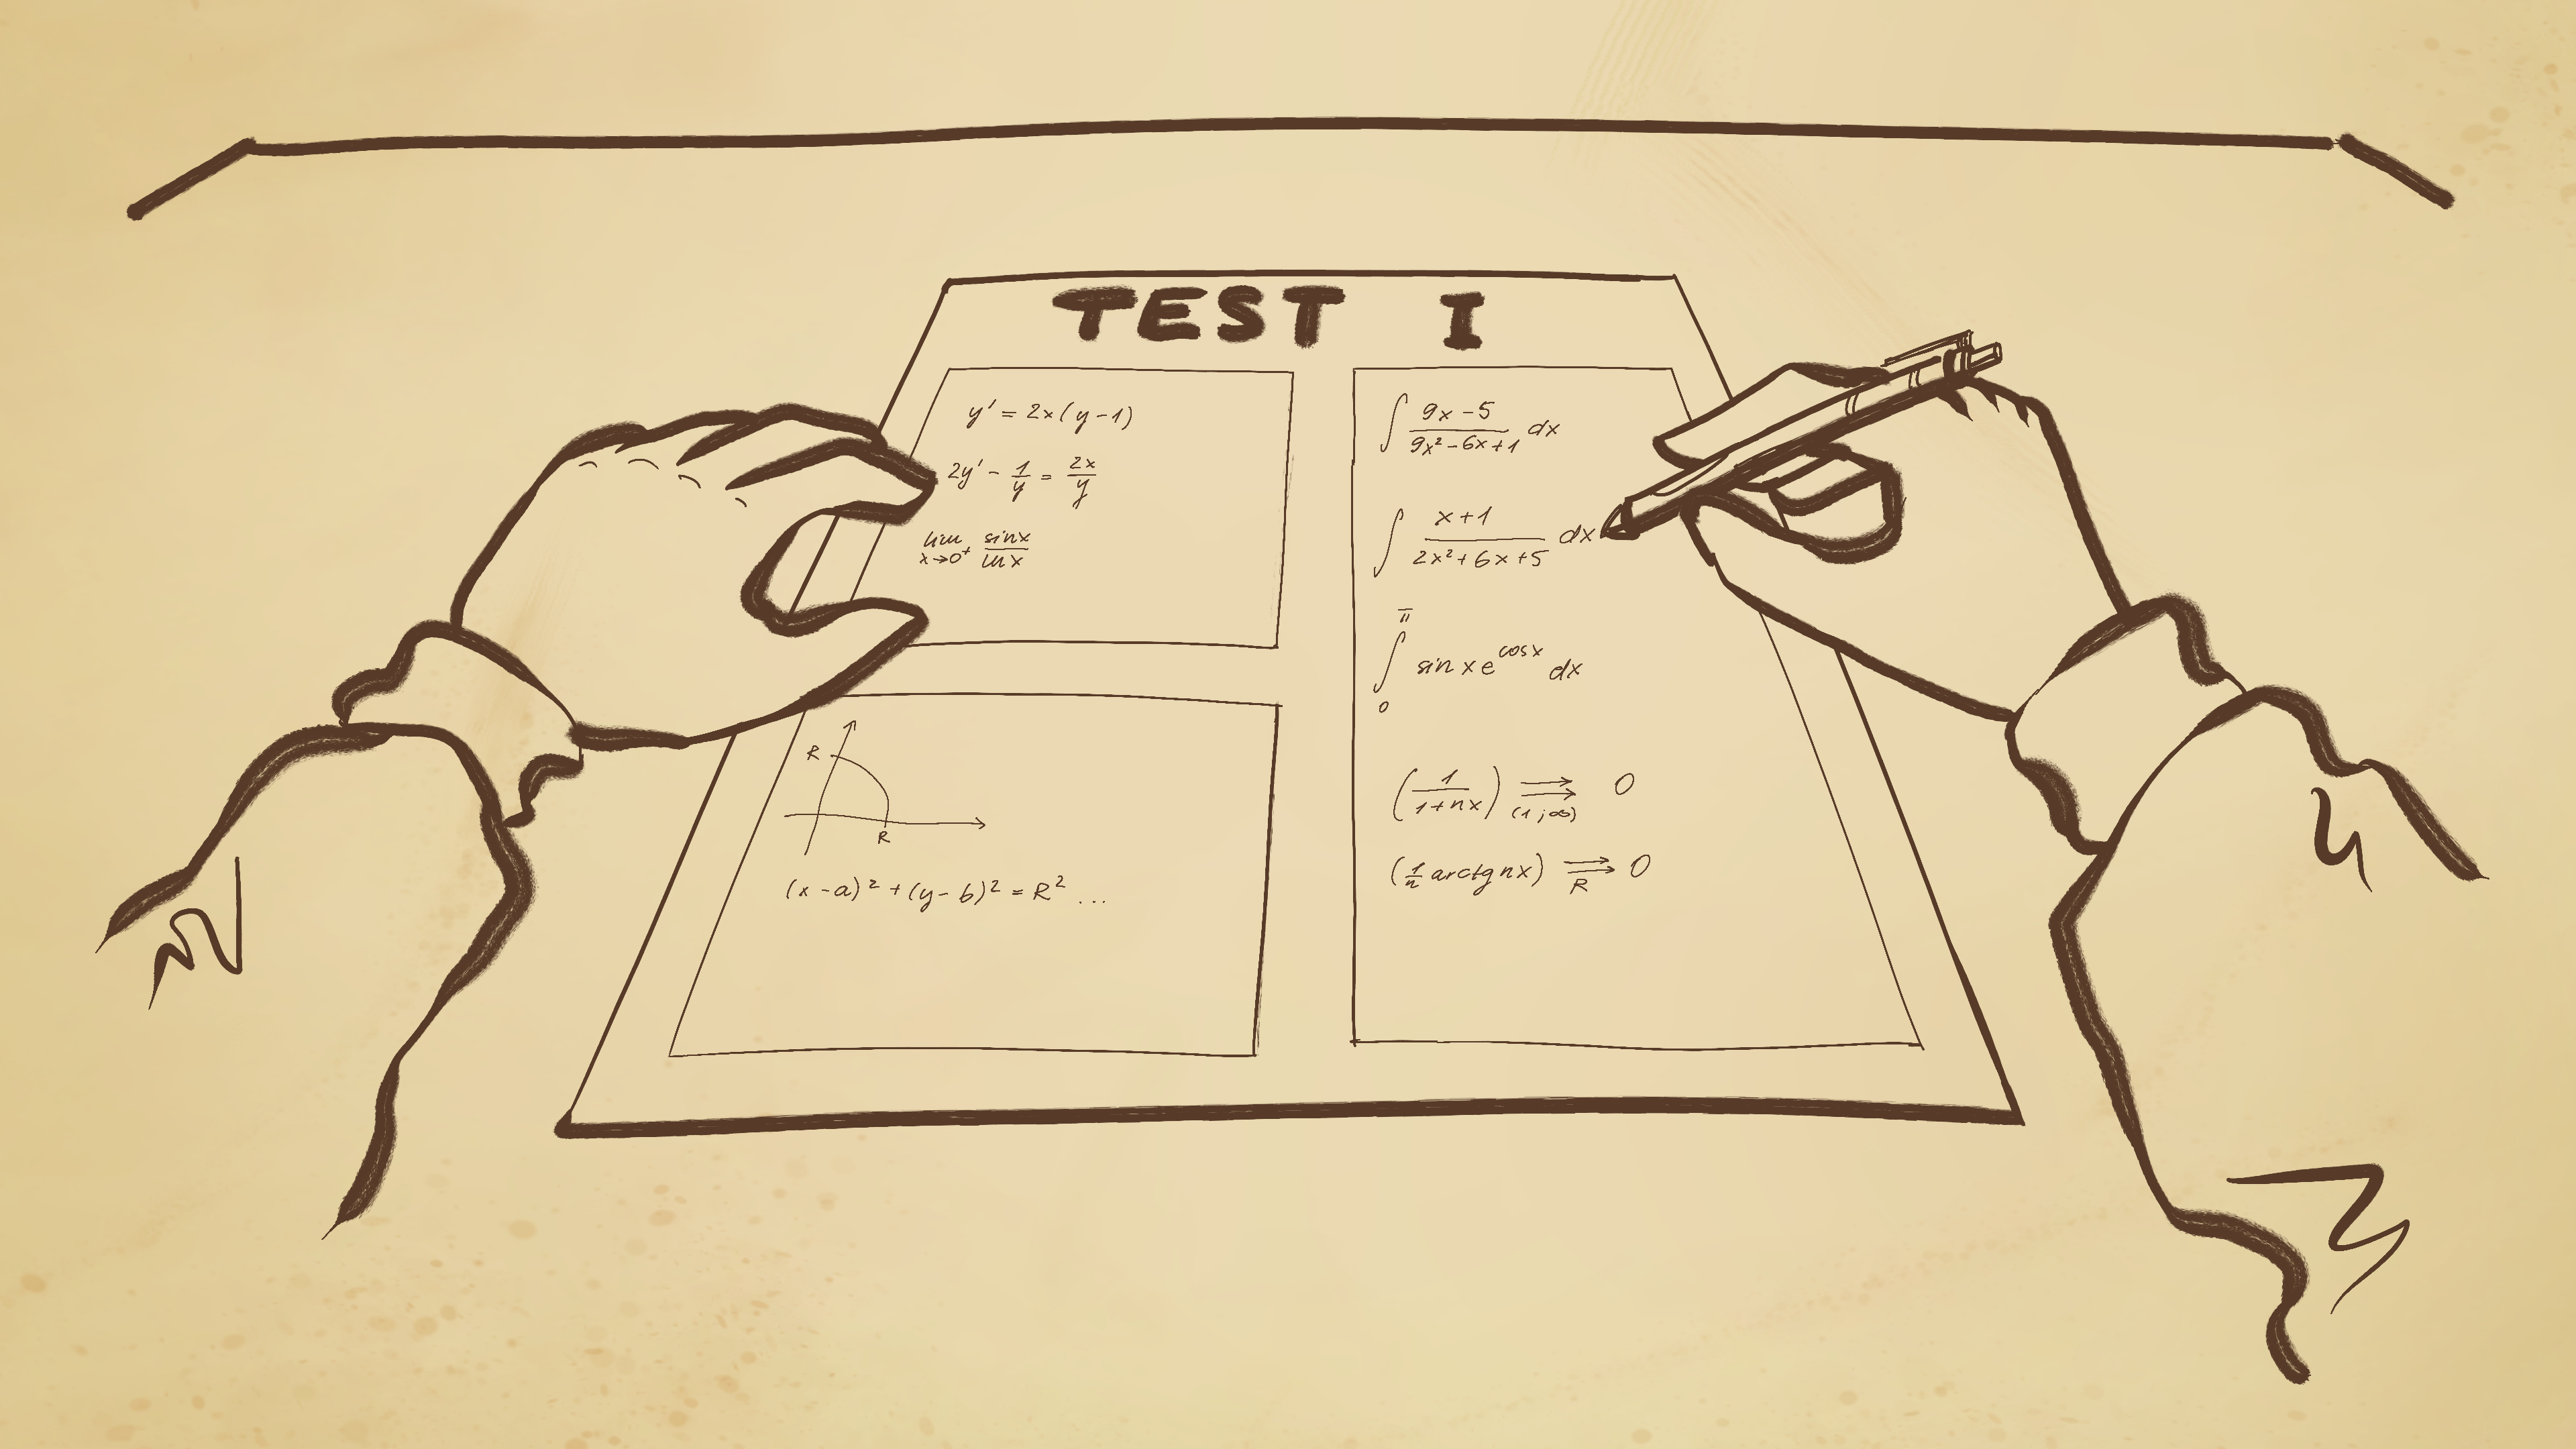 TEST I
y' = 2x(y-1)
2y' - 1/y = 2x/y
lim x→0⁺ sinx/lnx
R
R
(x-a)² + (y-b)² = R² ...
∫ 9x-5 / 9x²-6x+1 dx
∫ x+1 / 2x²+6x+5 dx
π
∫ sin x e^cosx dx
0
(1/1+nx) ⇉ (1;∞) 0
(1/n arctg nx) ⇉ R 0